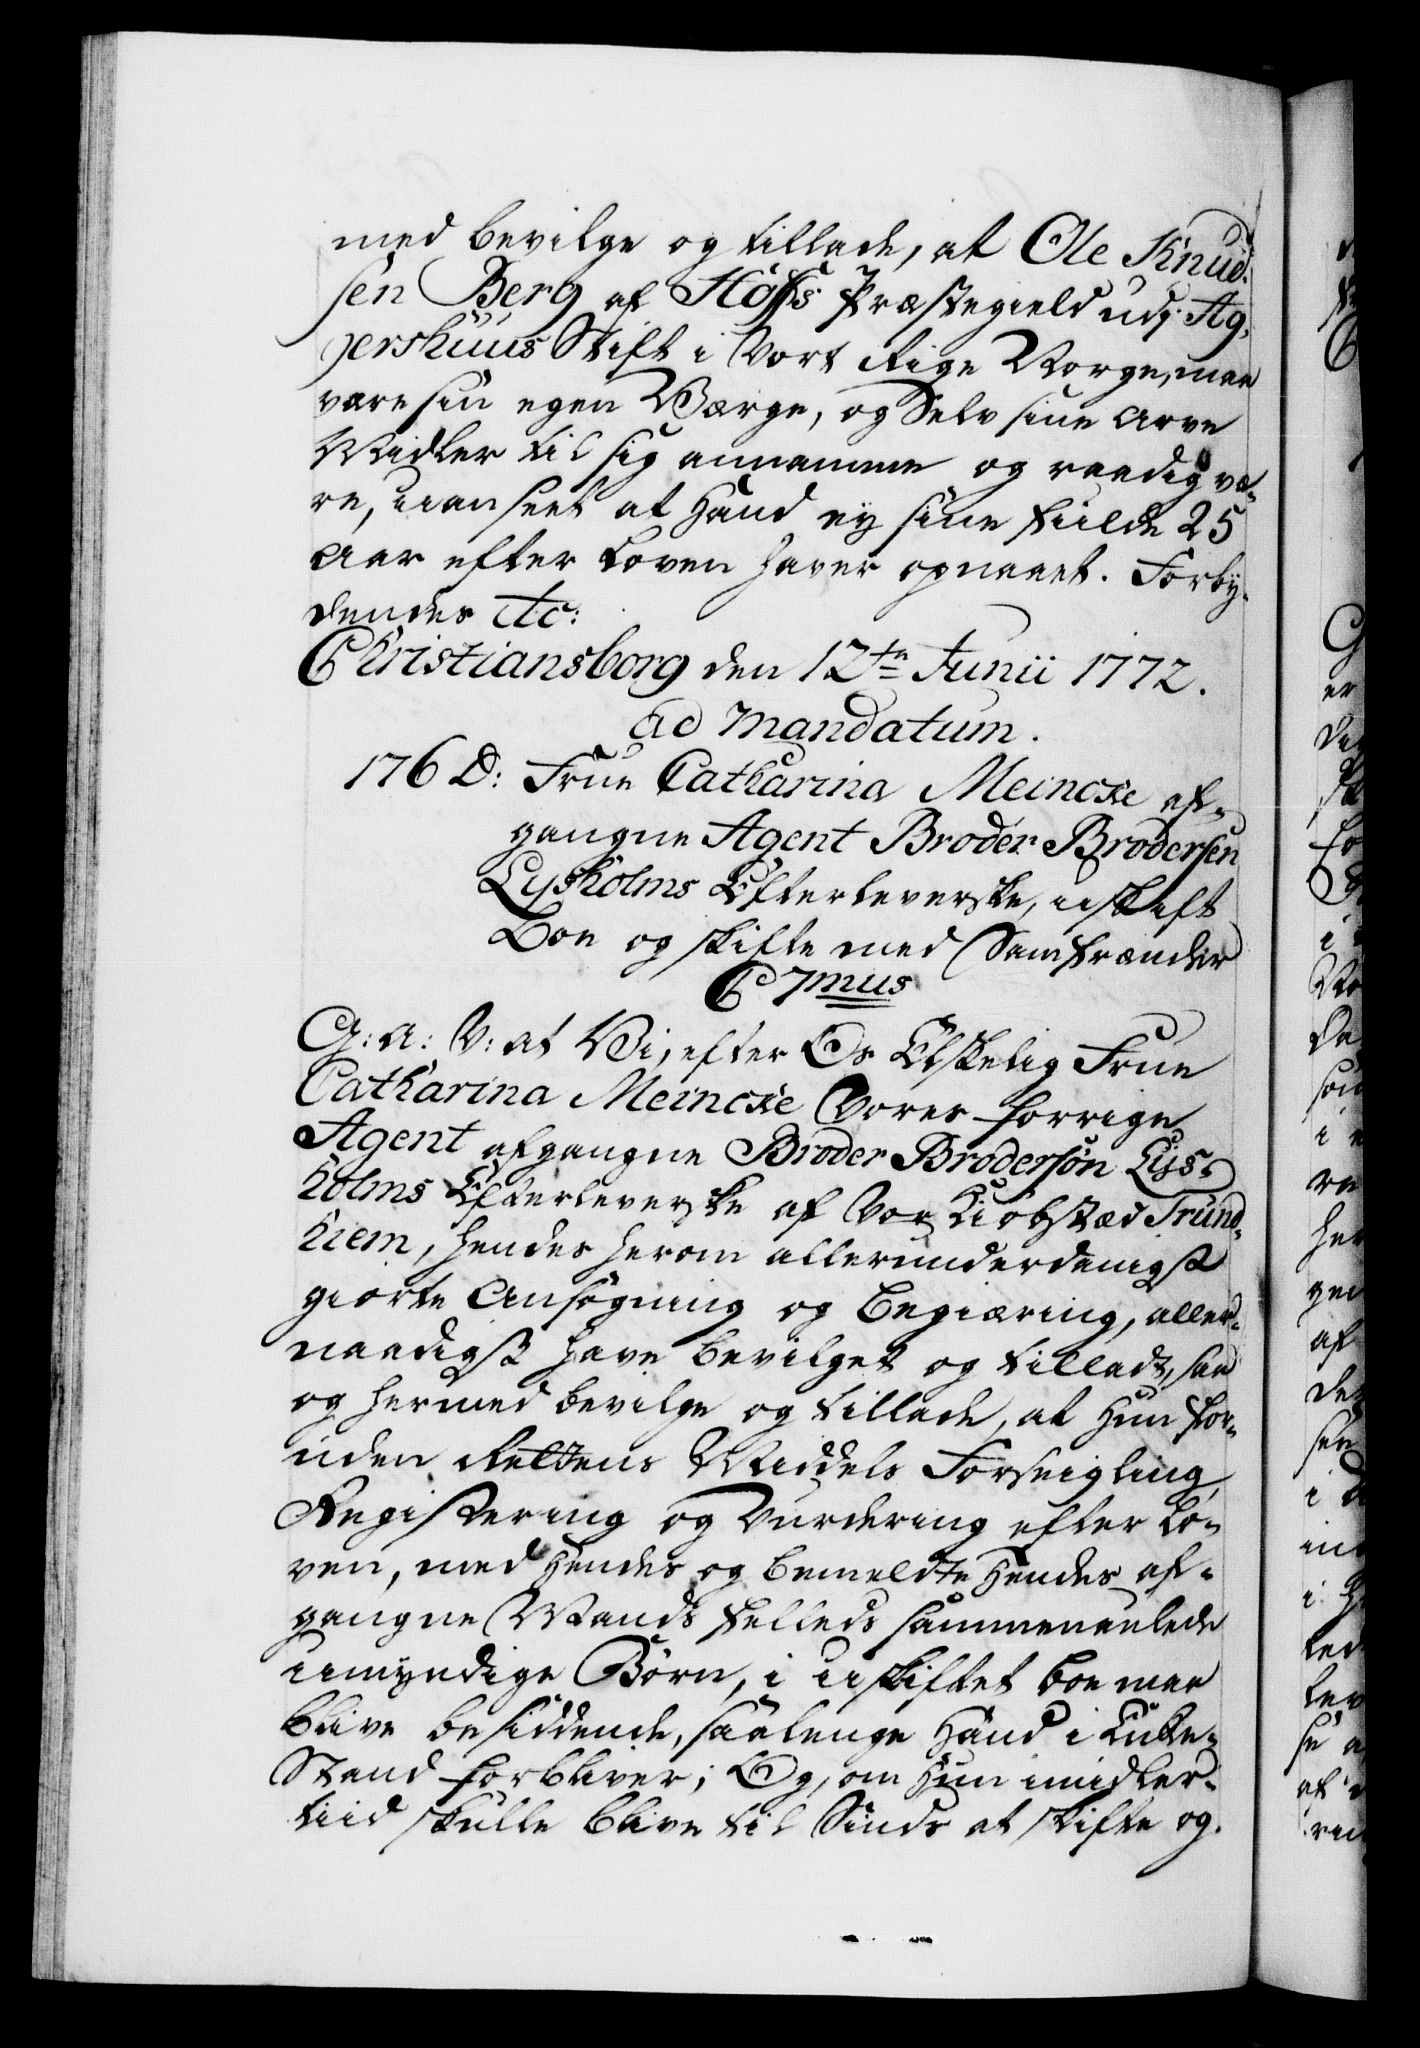 med bevilge og tillade, at Ole Knud-
sen Berg af Høffs Præstegield udj Ag-
gershuus Stift i Vort Rige Norge, maa
være sin egen Værge, og Selv sine Arve
Midler til sig annamme og raadig væ-
re, uanseet at Hand ey sine fulde 25
Aar efter Loven haver opnaaet. Forby-
dendes etc:
Christiansborg den 12te Junii 1772.
ad mandatum.
176 D: Frue Catharina Meincke af-
gangne Agent Broder Brodersen
Lysholms Efterleverske, uskift
Boe og skifte med Samfrænder
C 7mus
G: a: V: at Vi, efter Os Elskelig Frue
Catharina Meincke Vores forrige
Agent afgangne Broder Brodersøn Lys-
holms Efterleverske af Vor Kiøbstæd Trund-
hiem, hendes herom allerunderdanigst
giorte Ansøgning og Begiæring, aller-
naadigst have bevilget og tilladt, saa
og hermed bevilge og tillade, at Hun for-
uden Rettens Middels Forseigling,
Registering og Vurdering efter Lo-
ven, med Hendes og bemeldte Hendes af-
gangne Mands fælleds sammenavlede
umyndige Børn, i uskiftet Boe maa
blive besiddende, saalenge Hand i Enke-
Stand forbliver; Og, om Hun imidler-
tiid skulle blive til Sinds at skifte og